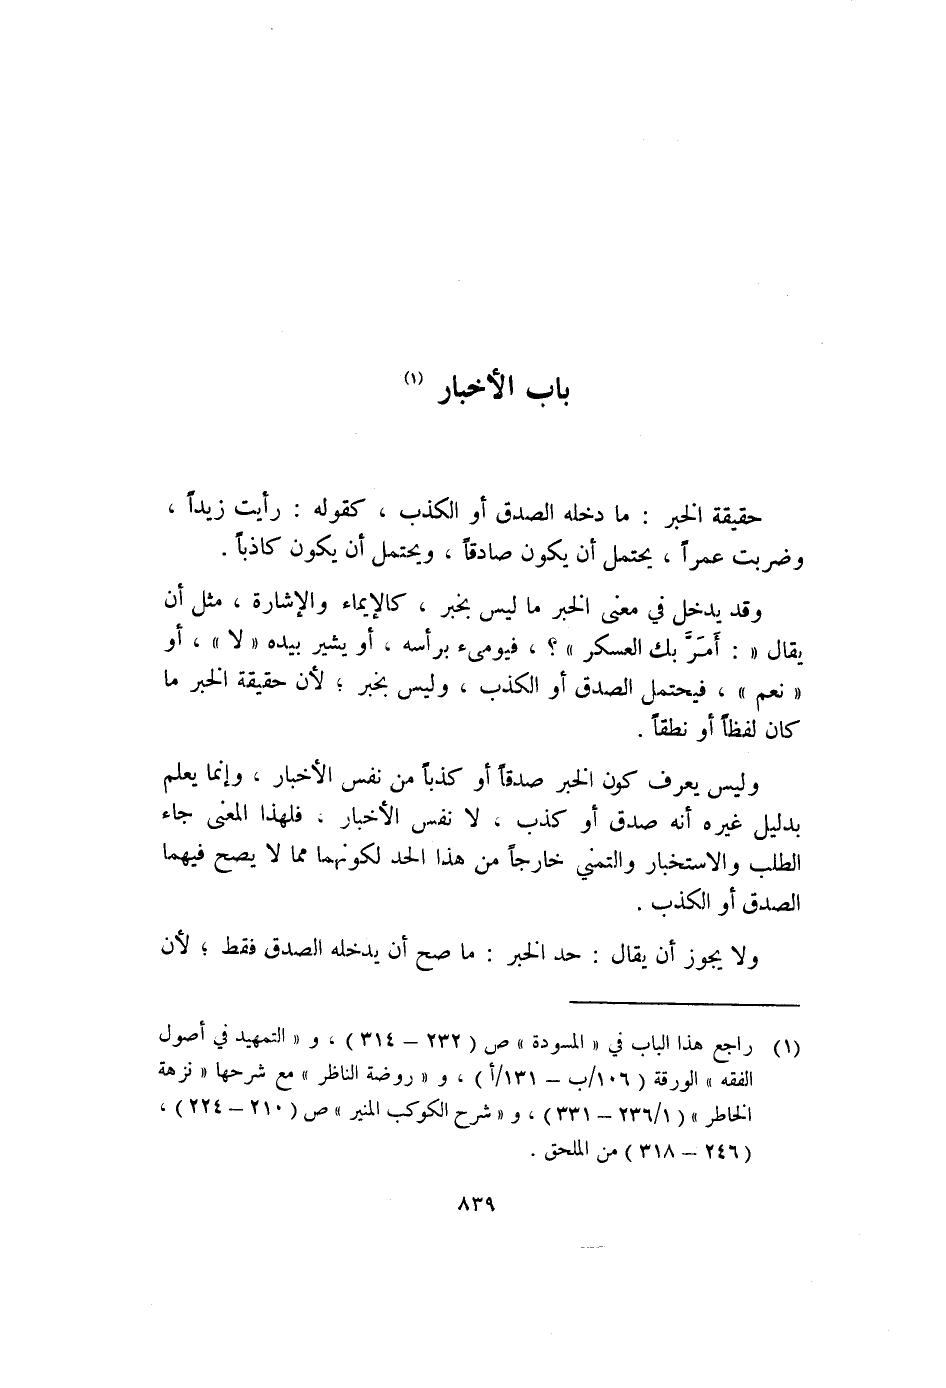 باب الأخبار (١)
حقيقة الخبر : ما دخله الصدق أو الكذب ، كقوله : رأيت زيداً ،
وضربت عمراً ، يحتمل أن يكون صادقاً ، ويحتمل أن يكون كاذباً .
وقد يدخل في معنى الخبر ما ليس بخبر ، كالإيماء والإشارة ، مثل أن
يقال « : أَمَرَّ بك العسكر » ؟ ، فيومىء برأسه ، أو يشير بيده « لا » ، أو
« نعم » ، فيحتمل الصدق أو الكذب ، وليس بخبر ؛ لأن حقيقة الخبر ما
كان لفظاً أو نطقاً .
وليس يعرف كون الخبر صدقاً أو كذباً من نفس الأخبار ، وإنما يعلم
بدليل غيره أنه صدق أو كذب ، لا نفس الأخبار ، فلهذا المعنى جاء
الطلب والاستخبار والتمني خارجاً من هذا الحد لكونهما مما لا يصح فيهما
الصدق أو الكذب .
ولا يجوز أن يقال : حد الخبر : ما صح أن يدخله الصدق فقط ؛ لأن
(١) راجع هذا الباب في « المسودة » ص ( ٢٣٢ – ٣١٤ ) ، و « التمهيد في أصول
الفقه » الورقة ( ١٠٦/ب – ١٣١/أ ) ، و « روضة الناظر » مع شرحها « نزهة
الخاطر » ( ٢٣٦/١ – ٣٣١ ) ، و « شرح الكوكب المنير » ص ( ٢١٠ – ٢٢٤ ) ،
( ٢٤٦ – ٣١٨ ) من الملحق .
٨٣٩